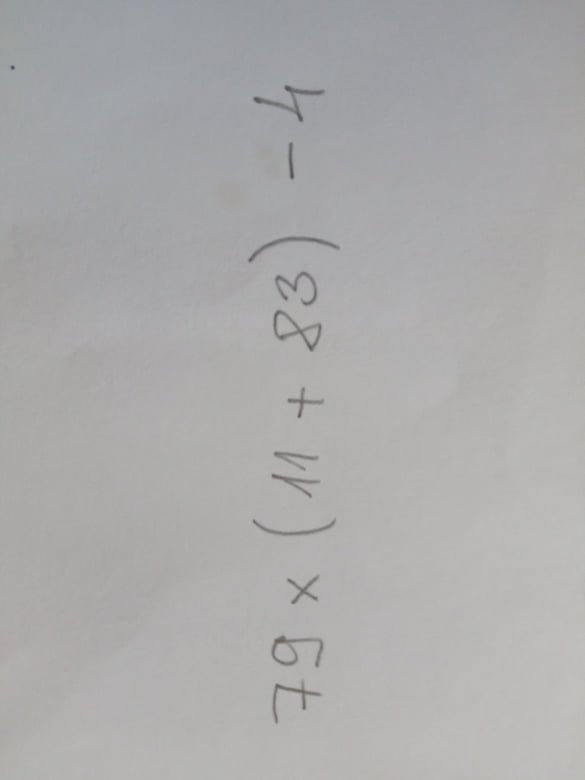 79 × (11 + 83) - 4